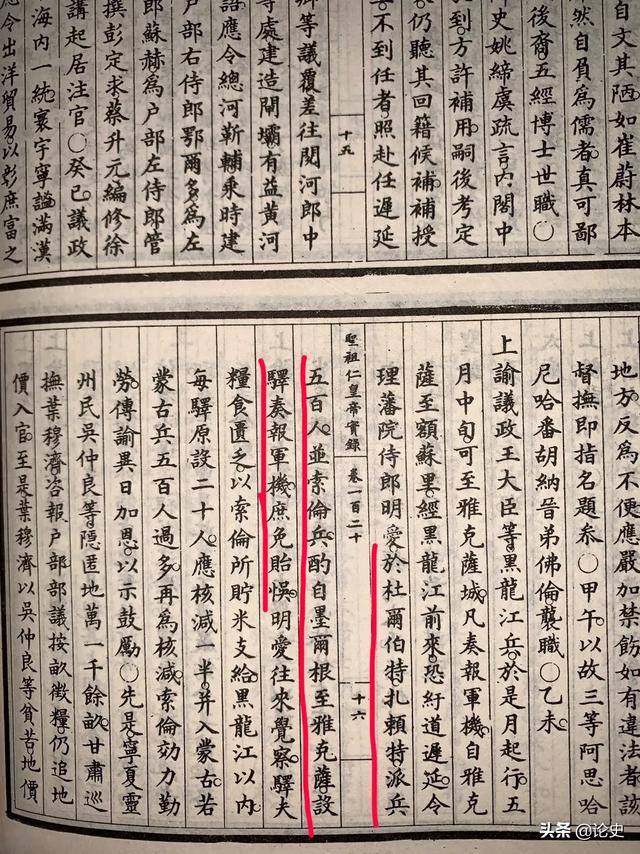 自文其陋如崔蔚林本
然自負爲儒者真可鄙
後裔五經博士世職〇
史姚締虞疏言内閣中
到方許補用嗣後考定
仍聽其回籍候補補授
不到任者照赴任遲延
十五
等議覆差往閱河郎中
等處建造閘壩有益黄河
語應令總河靳輔乘時建
户部右侍郎鄂爾多爲左
郎蘇赫爲户部左侍郎管
撰彭定求蔡升元編修徐
講起居注官〇癸巳議政
海内一統寰宇寧謐滿漢
應令出洋貿易以彰庶富之
地方反爲不便應嚴加禁飭如有違法者該
督撫即指名題叅〇甲午以故三等阿思哈
尼哈番胡納音弟佛倫襲職〇乙未
上諭議政王大臣等黑龍江兵於是月起行五
月中旬可至雅克薩城凡奏報軍機自雅克
薩至額蘇里經黑龍江前來恐紆道遲延令
理藩院侍郎明愛於杜爾伯特扎賴特派兵
聖祖仁皇帝實錄 卷一百二十 十六
五百人並索倫兵酌自墨爾根至雅克薩設
驛奏報軍機庶免貽悞明愛往來覺察驛夫
糧食匱乏以索倫所貯米支給黑龍江以内
每驛原設二十人應核減一半并入蒙古若
蒙古兵五百人過多再爲核減索倫効力勤
勞傳諭異日加恩以示鼓勵〇先是寧夏靈
州民吴仲良等隱匿地萬一千餘畝甘肅巡
撫葉穆濟咨報户部部議按畝徵糧仍追地
價入官至是葉穆濟以吴仲良等貧苦地價
头条 @论史